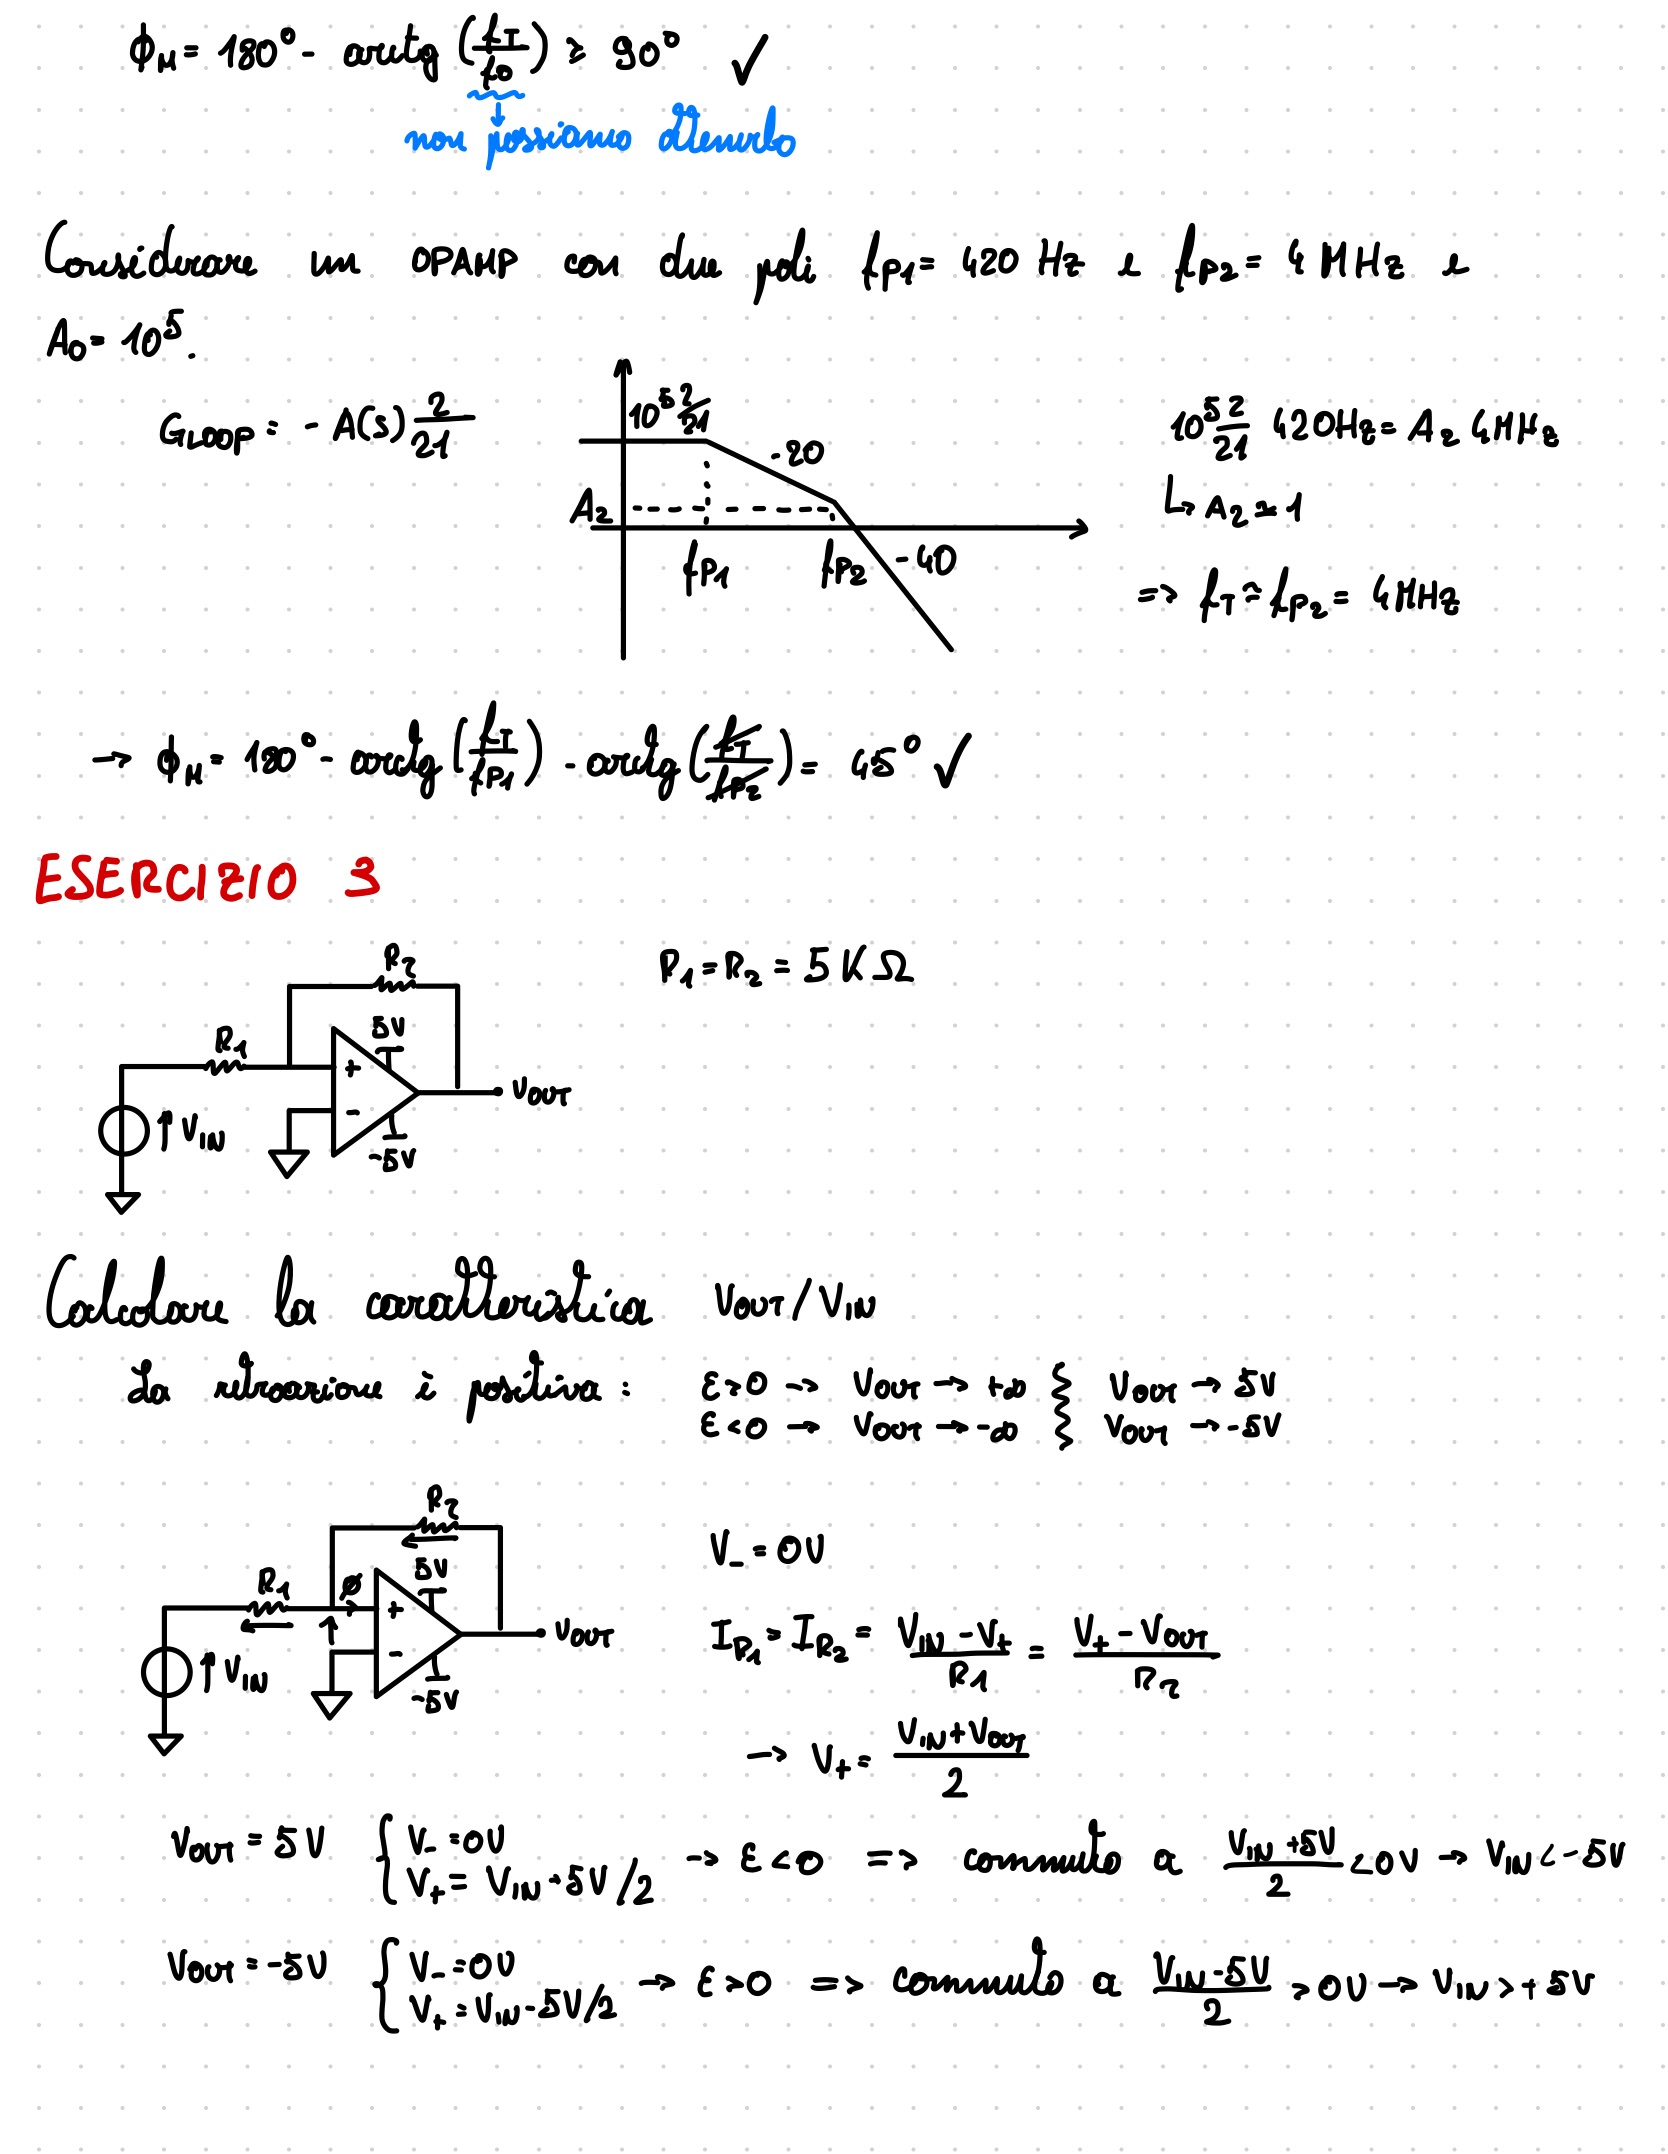 ϕM = 180° - arctg (fT/f0) ≥ 90° ✓
non possiamo ottenerlo
Considerare un OPAMP con due poli fP1 = 420 Hz e fP2 = 4 MHz e
A0 = 10^5.
GLOOP = - A(s) 2/21
10^5 2/21
-20
A2
fP1
fP2
-40
10^5 2/21 420Hz = A2 4MHz
↳ A2 ≃ 1
=> fT ≃ fP2 = 4MHz
→ ϕM = 180° - arctg (fT/fP1) - arctg (fT/fP2) = 45° ✓
ESERCIZIO 3
R1 = R2 = 5KΩ
R2
5V
R1
+
-
VOUT
↑ VIN
-5V
Calcolare la caratteristica VOUT/VIN
La retroazione è positiva: ε>0 → VOUT → +∞ VOUT → 5V
ε<0 → VOUT → -∞ VOUT → -5V
R2
5V
R1
∅
+
-
VOUT
↑ VIN
-5V
V- = 0V
IR1 = IR2 = (VIN - V+)/R1 = (V+ - VOUT)/R2
→ V+ = (VIN + VOUT)/2
VOUT = 5V { V- = 0V
V+ = VIN + 5V/2 → ε<0 => commuto a (VIN + 5V)/2 < 0V → VIN < -5V
VOUT = -5V { V- = 0V
V+ = VIN - 5V/2 → ε>0 => commuto a (VIN - 5V)/2 > 0V → VIN > +5V